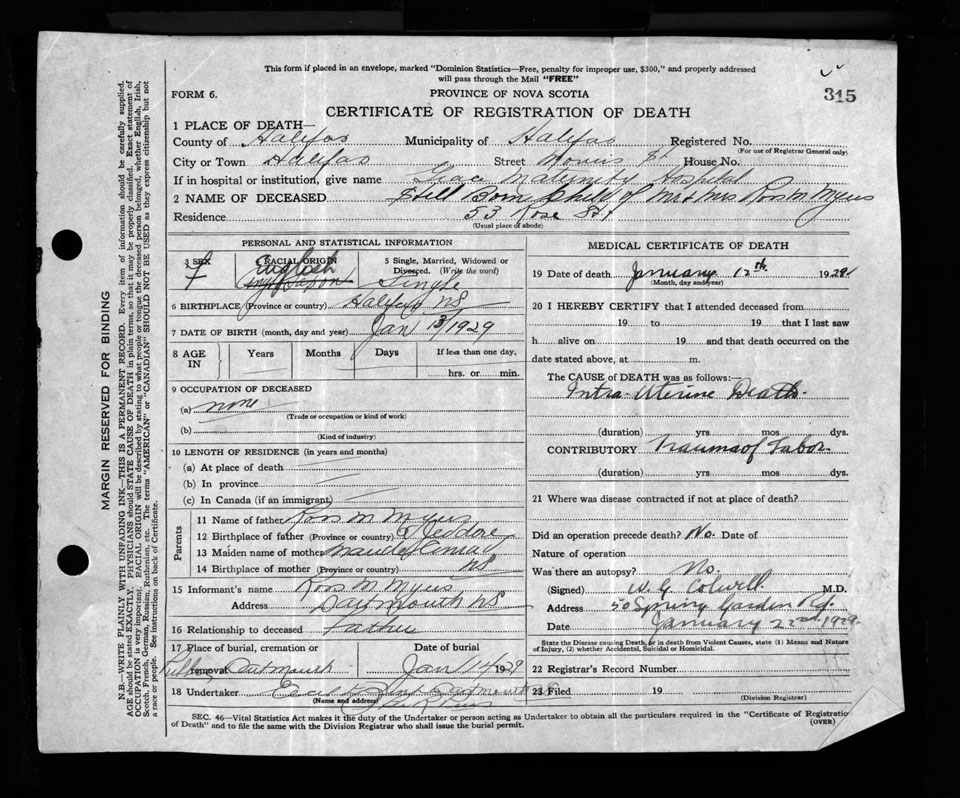 This form if placed in an envelope, marked "Dominion Statistics—Free, penalty for improper use, $300," and properly addressed
will pass through the Mail "FREE"
315
FORM 6.
PROVINCE OF NOVA SCOTIA
CERTIFICATE OF REGISTRATION OF DEATH
1 PLACE OF DEATH—
County of Halifax Municipality of Halifax Registered No.
(For use of Registrar General only)
City or Town Halifax Street Morris St House No.
If in hospital or institution, give name Grace Maternity Hospital
2 NAME OF DECEASED Still Born Child of Mr & Mrs Ross M Myers
Residence 53 Rose St
(Usual place of abode)
PERSONAL AND STATISTICAL INFORMATION
3 SEX F
RACIAL ORIGIN English
5 Single, Married, Widowed or
Divorced. (Write the word)
Single
6 BIRTHPLACE (Province or country) Halifax NS
7 DATE OF BIRTH (month, day and year) Jan 13/1929
8 AGE IN Years Months Days If less than one day,
hrs. or min.
9 OCCUPATION OF DECEASED
(a) none
(Trade or occupation or kind of work)
(b)
(Kind of industry)
10 LENGTH OF RESIDENCE (in years and months)
(a) At place of death
(b) In province
(c) In Canada (if an immigrant)
Parents
11 Name of father Ross M Myers
12 Birthplace of father (Province or country) Jeddore
13 Maiden name of mother
14 Birthplace of mother (Province or country) NS
15 Informant's name Ross M Myers
Address Dartmouth NS
16 Relationship to deceased Father
17 Place of burial, cremation or
removal Dartmouth
Date of burial
Jan 14/1929
18 Undertaker
(Name and address)
MEDICAL CERTIFICATE OF DEATH
19 Date of death January 12th 1929
(Month, day and year)
20 I HEREBY CERTIFY that I attended deceased from
19 to 19 that I last saw
h alive on 19 and that death occurred on the
date stated above, at m.
The CAUSE of DEATH was as follows:—
Intra-Uterine Death.
(duration) yrs mos dys.
CONTRIBUTORY Trauma of Labor.
(duration) yrs mos dys.
21 Where was disease contracted if not at place of death?
Did an operation precede death? No. Date of
Nature of operation
Was there an autopsy? No.
(Signed) W. G. Colwell M.D.
Address 50 Spring Garden Rd.
Date January 22nd. 1929.
State the Disease causing Death, or in death from Violent Causes, state (1) Means and Nature
of Injury, (2) whether Accidental, Suicidal or Homicidal.
22 Registrar's Record Number
23 Filed 19
(Division Registrar)
SEC. 46—Vital Statistics Act makes it the duty of the Undertaker or person acting as Undertaker to obtain all the particulars required in the "Certificate of Registration
of Death" and to file the same with the Division Registrar who shall issue the burial permit.
(OVER)
MARGIN RESERVED FOR BINDING
N.B.—WRITE PLAINLY WITH UNFADING INK—THIS IS A PERMANENT RECORD. Every item of information should be carefully supplied.
AGE should be stated EXACTLY. PHYSICIANS should STATE CAUSE OF DEATH in plain terms, so that it may be properly classified. Exact statement of
OCCUPATION is very important. RACIAL ORIGIN will be described by stating to what people or tongue the deceased person belonged, whether English, Irish,
Scotch, French, German, Russian, Ruthenian, etc. The terms "AMERICAN" or "CANADIAN" SHOULD NOT BE USED as they express citizenship but not
a race or people. See instructions on back of Certificate.